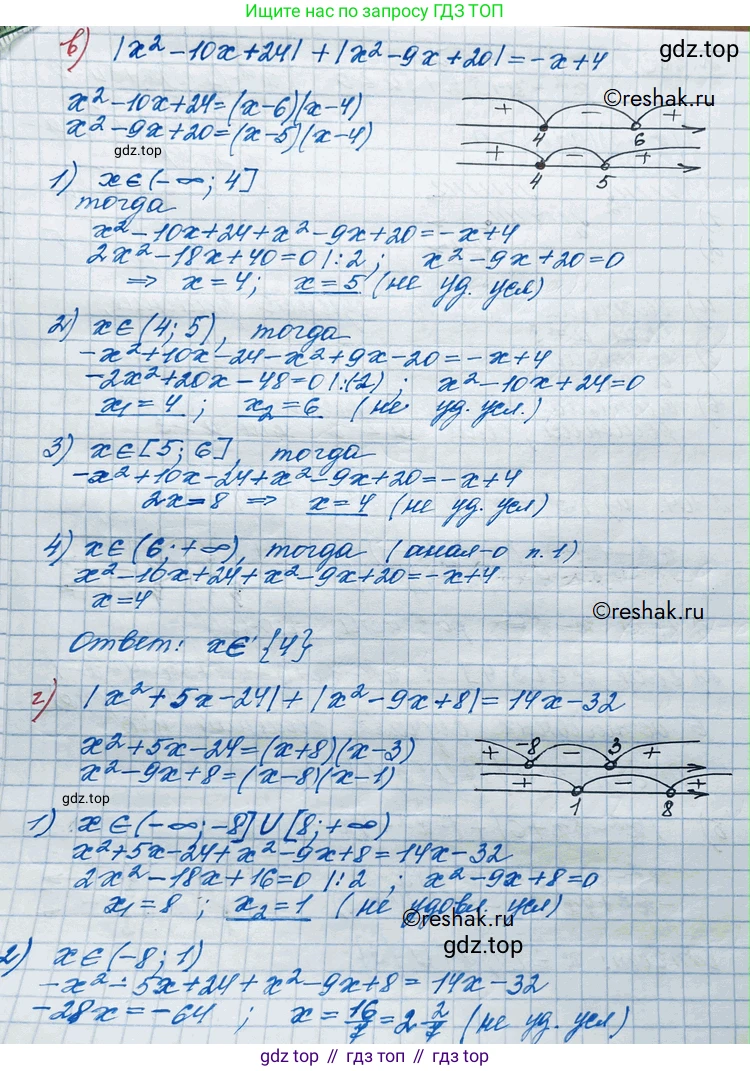 Ищите нас по запросу ГДЗ ТОП
в) |x² - 10x + 24| + |x² - 9x + 20| = -x + 4
gdz.top
x² - 10x + 24 = (x-6)(x-4)
©reshak.ru
x² - 9x + 20 = (x-5)(x-4)
gdz.top
+ - +
4 6
+ - +
4 5
1) x ∈ (-∞; 4]
тогда
x² - 10x + 24 + x² - 9x + 20 = -x + 4
2x² - 18x + 40 = 0 |:2 ; x² - 9x + 20 = 0
⇒ x = 4; x = 5 (не уд. усл)
2) x ∈ (4; 5), тогда
-x² + 10x - 24 - x² + 9x - 20 = -x + 4
-2x² + 20x - 48 = 0 |:(2) ; x² - 10x + 24 = 0
x₁ = 4 ; x₂ = 6 (не уд. усл.)
3) x ∈ [5; 6], тогда
-x² + 10x - 24 + x² - 9x + 20 = -x + 4
2x = 8 ⇒ x = 4 (не уд. усл)
4) x ∈ (6; +∞), тогда (анал-о п. 1)
x² - 10x + 24 + x² - 9x + 20 = -x + 4
x = 4
©reshak.ru
Ответ: x ∈ {4}
г) |x² + 5x - 24| + |x² - 9x + 8| = 14x - 32
x² + 5x - 24 = (x+8)(x-3)
x² - 9x + 8 = (x-8)(x-1)
+ -8 - 3 +
+ - +
1 8
gdz.top
1) x ∈ (-∞; -8] U [8; +∞)
x² + 5x - 24 + x² - 9x + 8 = 14x - 32
2x² - 18x + 16 = 0 |:2 ; x² - 9x + 8 = 0
x₁ = 8 ; x₂ = 1 (не удовл. усл)
©reshak.ru
gdz.top
2) x ∈ (-8; 1)
-x² - 5x + 24 + x² - 9x + 8 = 14x - 32
-28x = -64 ; x = 16/7 = 2 2/7 (не уд. усл)
gdz.top // гдз.топ // gdz.top // гдз.топ